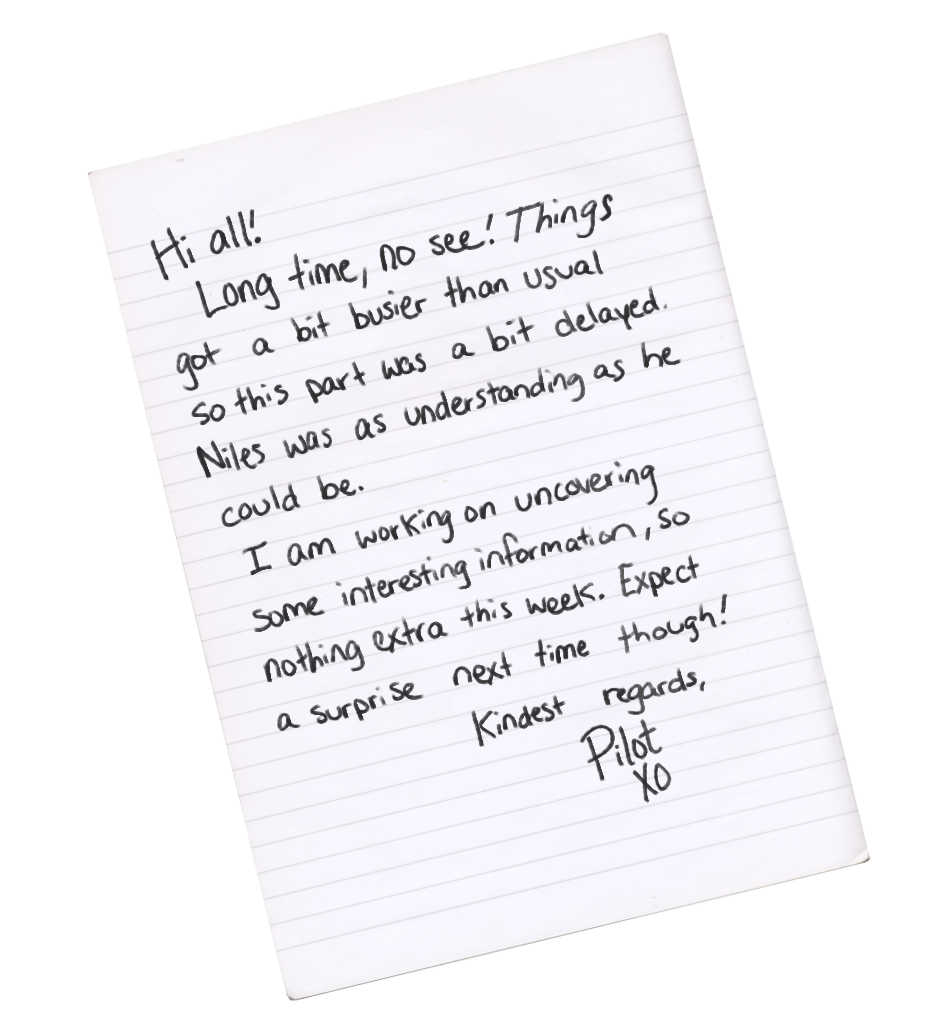 Hi all!
Long time, no see! Things
got a bit busier than usual
so this part was a bit delayed.
Niles was as understanding as he
could be.
I am working on uncovering
some interesting information, so
nothing extra this week. Expect
a surprise next time though!
Kindest regards,
Pilot
XO